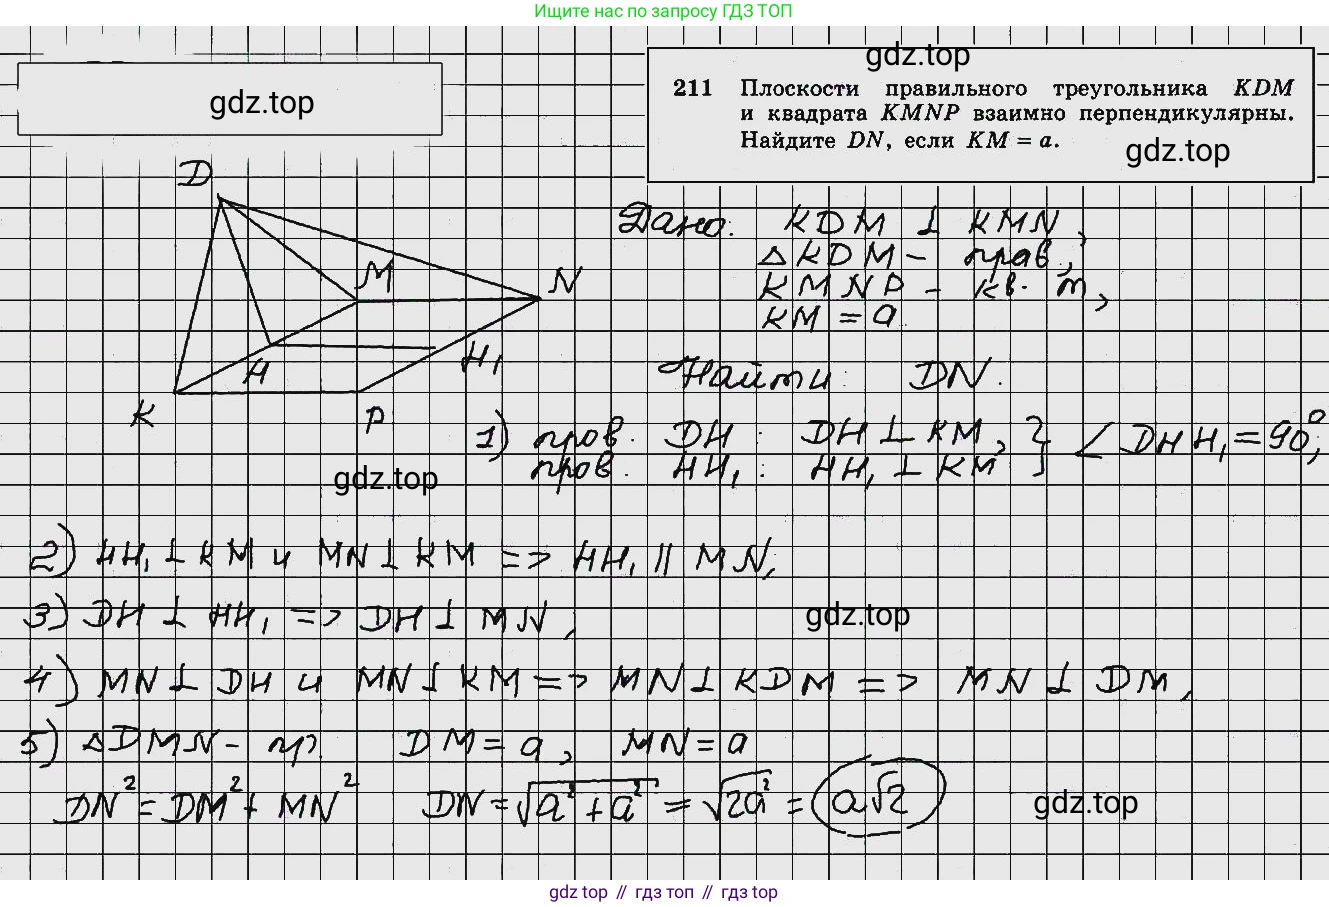 Ищите нас по запросу ГДЗ ТОП
gdz.top
gdz.top
211 Плоскости правильного треугольника KDM
и квадрата KMNP взаимно перпендикулярны.
Найдите DN, если KM = a.
gdz.top
D
M
N
H
H₁
K
P
Дано: KDM ⊥ KMN,
△KDM - прав,
KMNP - кв. т,
KM = a
Найти: DN.
1) пров. DH : DH ⊥ KM, } ∠DHH₁ = 90°;
пров. HH₁ : HH₁ ⊥ KM
gdz.top
2) HH₁ ⊥ KM и MN ⊥ KM => HH₁ || MN;
3) DH ⊥ HH₁ => DH ⊥ MN,
gdz.top
4) MN ⊥ DH и MN ⊥ KM => MN ⊥ KDM => MN ⊥ DM,
5) △DMN - пр. DM = a, MN = a
DN² = DM² + MN² DN = √a² + a² = √2a² = a√2
gdz.top
gdz top // гдз топ // gdz top